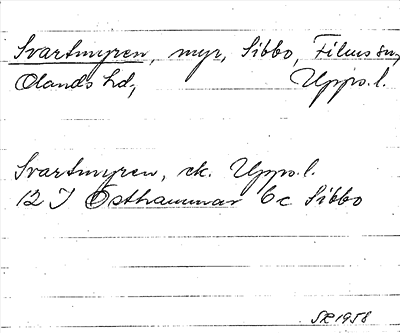 Svartmyren, myr, Sibbo, Films sn,
Olands hd, Upps. l.
Svartmyren, ek. Upps. l.
12 I Östhammar 6c Sibbo
SR 1958